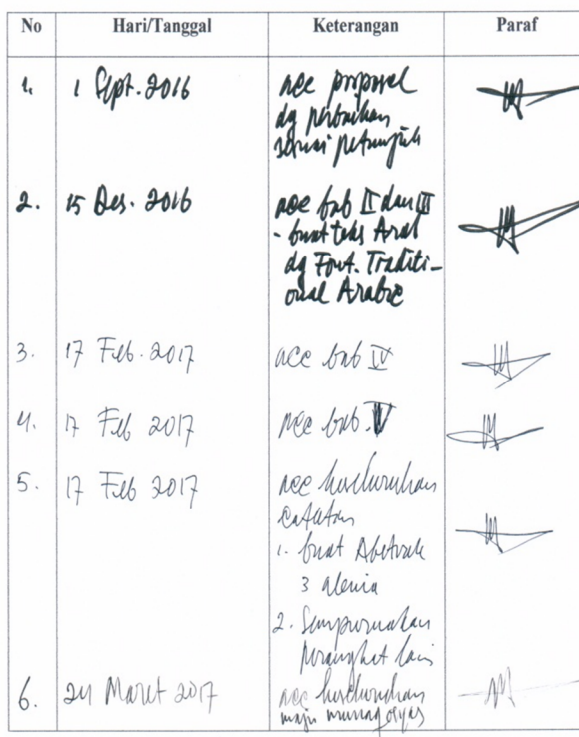 No Hari/Tanggal Keterangan Paraf
1. 1 Sept. 2016 acc proposal
dg perbaikan
sesuai petunjuk
2. 15 Des. 2016 acc bab II dan III
- buat teks Arab
dg Font. Traditi-
onal Arabic
3. 17 Feb. 2017 acc bab IV
4. 17 Feb 2017 acc bab V
5. 17 Feb 2017 acc keseluruhan
Catatan
1. buat Abstrak
3 alenia
2. Sempurnakan
perangkat lain
6. 24 Maret 2017 acc keseluruhan
maju munaqosyas